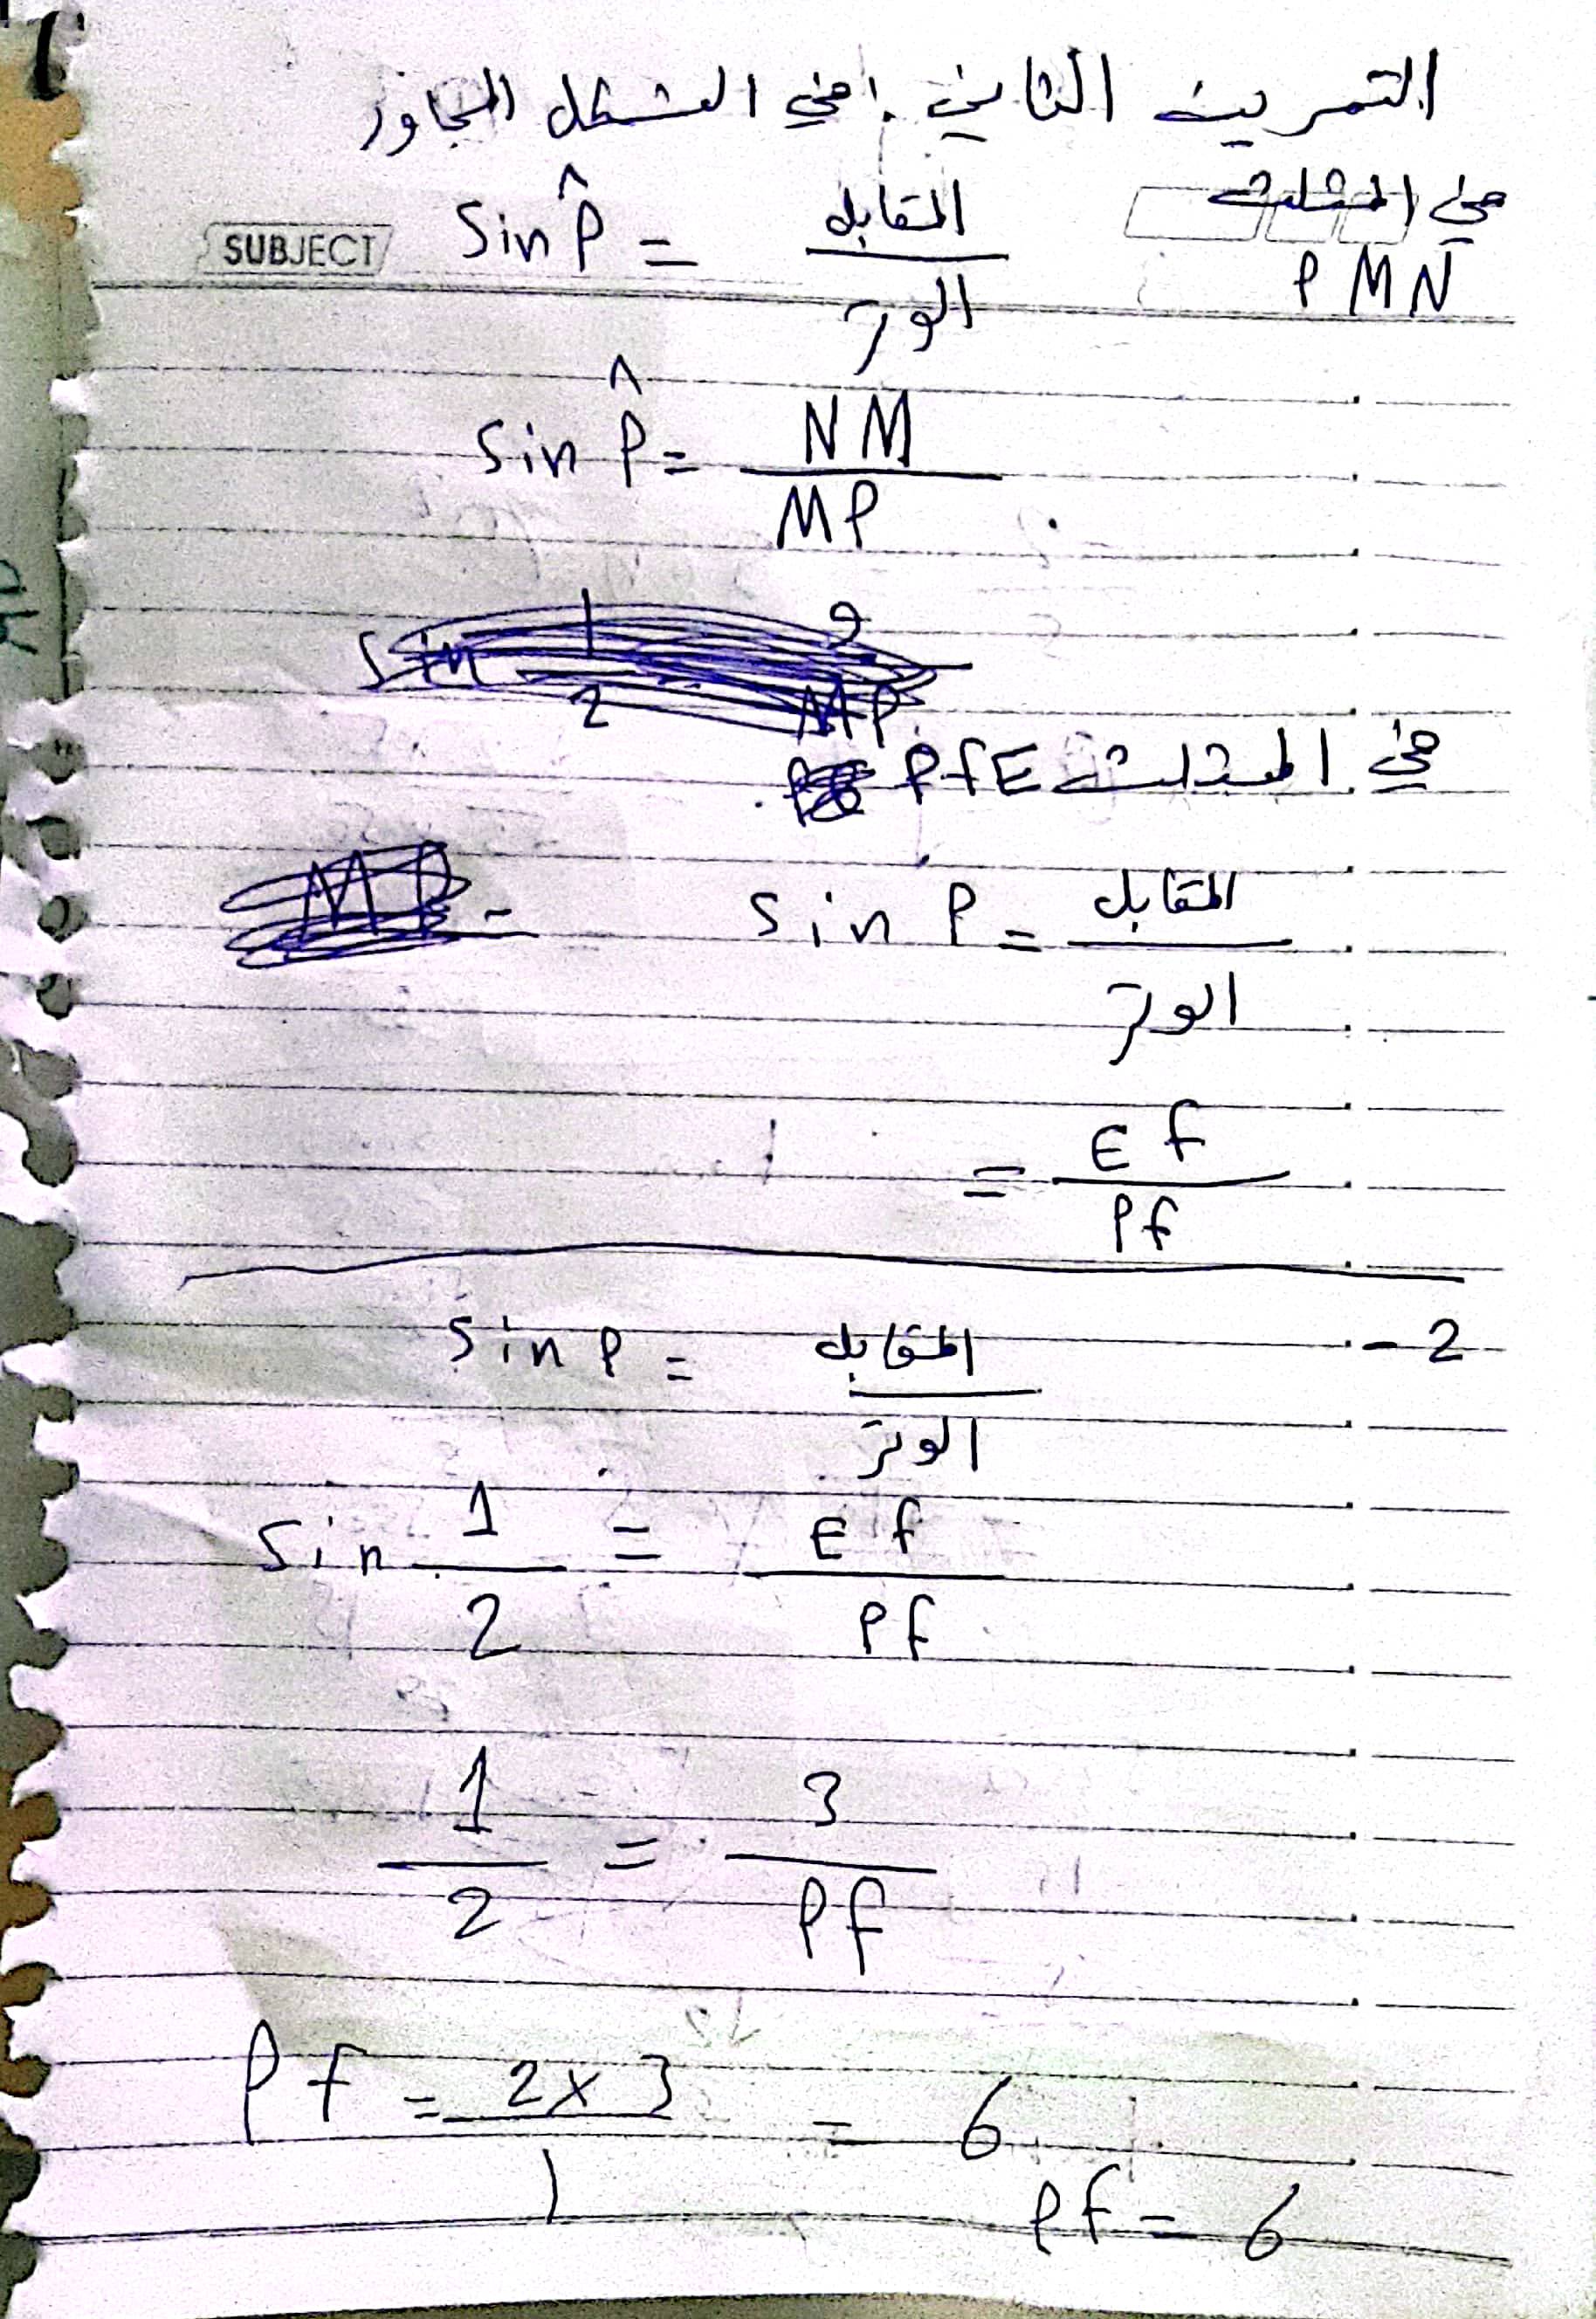 التمرين الثاني : في الشكل المجاور
في المثلث
PMN
SUBJECT
Sin P̂ = المقابل / الوتر
Sin P̂ = NM / MP
Sin 1/2 9/MP
في المثلث PfE
MP =
Sin P = المقابل / الوتر
= Ef / Pf
2 -
Sin P = المقابل / الوتر
Sin 1/2 = Ef / Pf
1/2 = 3/Pf
Pf = 2x3 / 1 = 6
Pf = 6